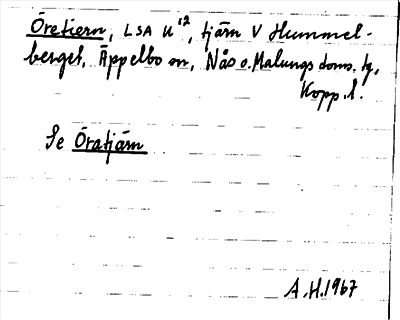 Öretiern, LSA U¹², tjärn V Hummel-
berget, Äppelbo sn, Nås o. Malungs doms. tg,
Kopp. l.
Se Öratjärn
A.H. 1967